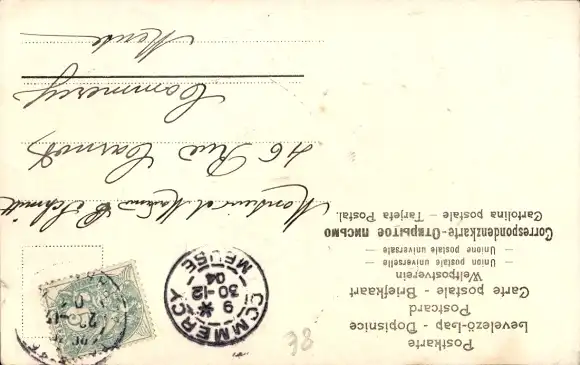 Postkarte
Levelező-Lap - Dopisnice
Postcard
Carte postale - Briefkaart
Weltpostverein
— Union postale universelle —
— Unione postale universale —
Correspondenzkarte - Открытое письмо
Cartolina postale — Tarjeta Postal.
COMMERCY
9
30-12
04
MEUSE
Monsieur et Madame Schmitt
46 Rue Carnot
Commercy
Meuse
38